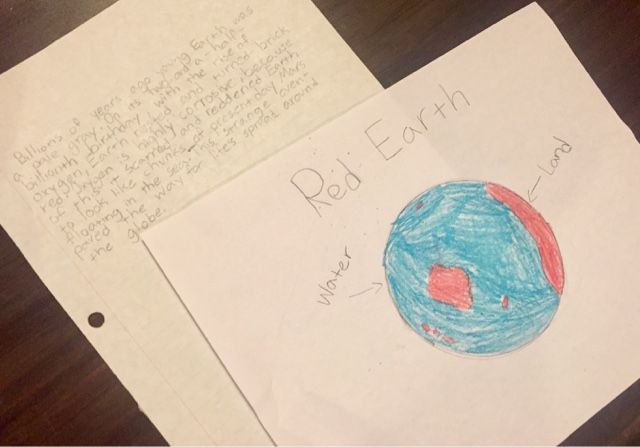 Billions of years ago young Earth was
a pale gray. On its two and a half
billionth birthday, with the rise of
oxygen, Earth rusted and turned brick
red. Oxygen is highly corrosive because
of this it scarred and reddened Earth
to look like chunks of present day Mars
floating in the sea. This strange event
paved the way for life's spread around
the globe.
Red Earth
Land
Water